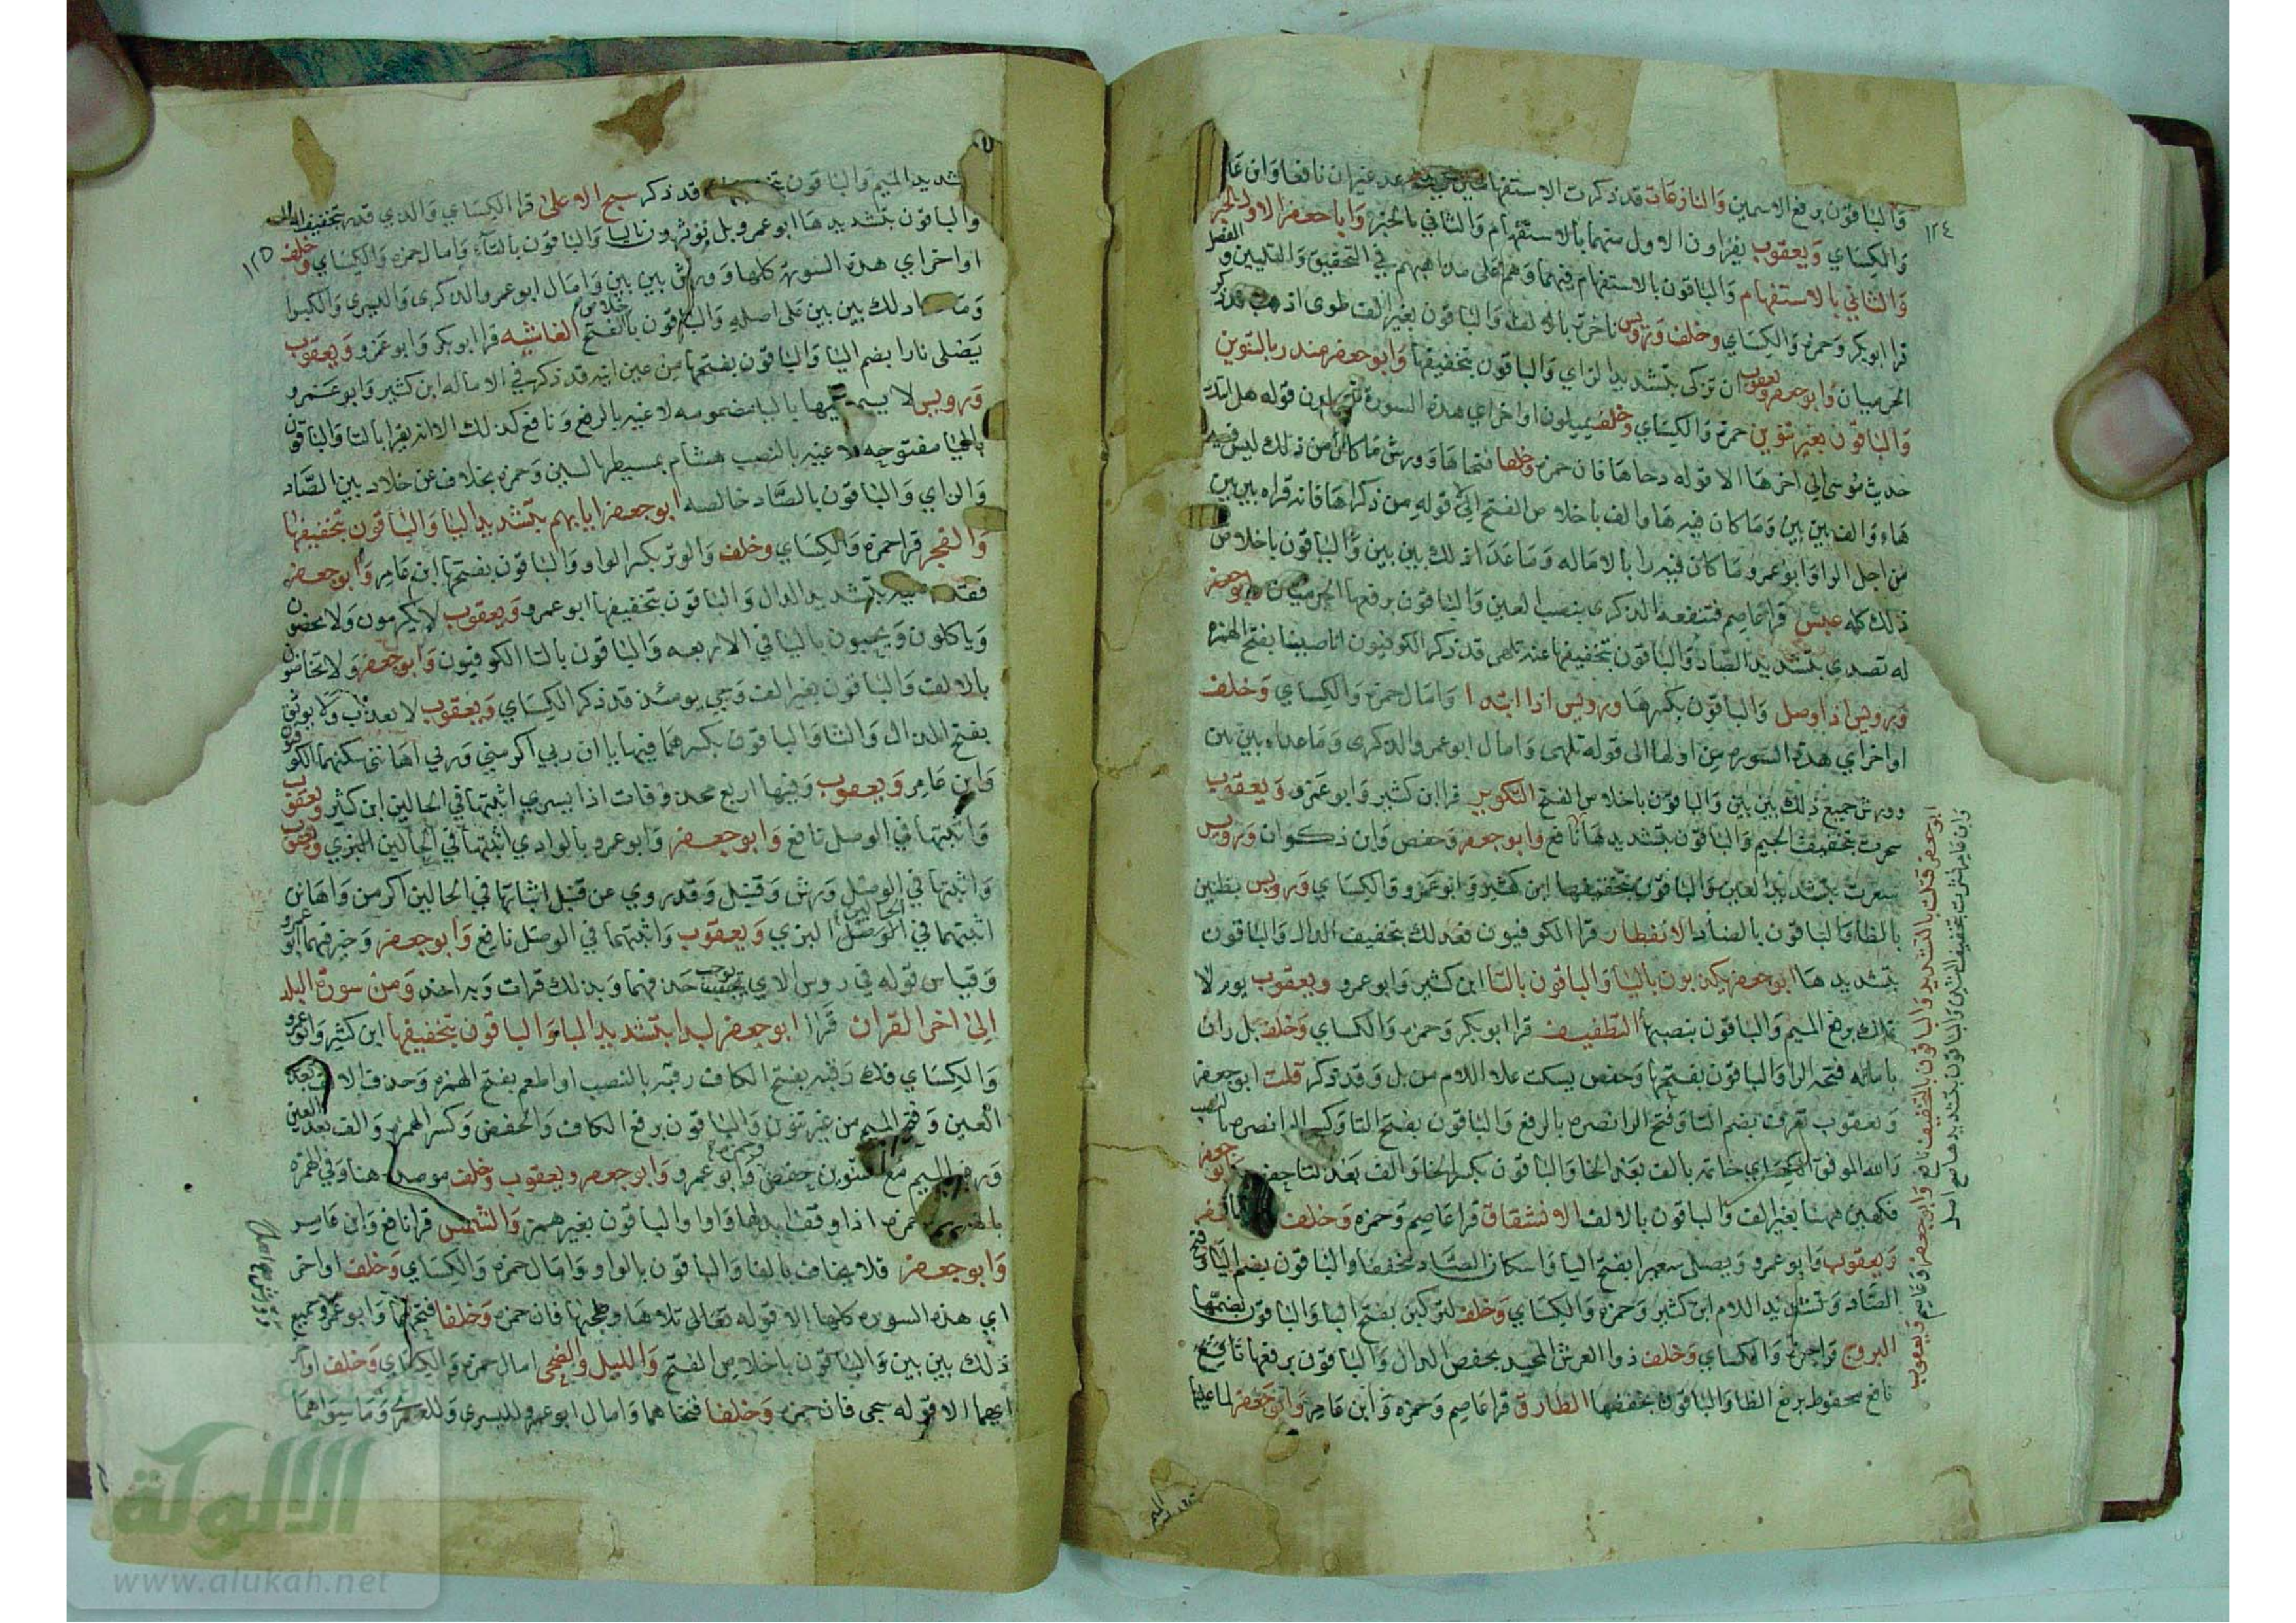 ١٢٤
والباقون برفع الاسمين والنازعات قد ذكرت الاستفهامين في عد غيران نافعا وابن عا
والكساي ويعقوب يقراون الاول منهما بالاستفهام والثاني بالخبر وابا جعفر الاول بالخبر
والثاني بالاستفهام والباقون بالاستفهام فيهما وهم على مذاهبهم في التحقيق والتليين والفصل
قرا ابو بكر وحمزه والكساي وخلف ورويس ناخرة بالالف والباقون بغير الف طوى اذهب قد ذكر
الحرميان وابو جعفر ويعقوب ان تزكى بتشديد الزاي والباقون بتخفيفها وابو جعفر منذر بالتنوين
والباقون بغير تنوين حمزة والكساي وخلف يميلون اواخر اي هذه السورة من قوله هل اتك
حديث موسى الى اخرها الا قوله دحاها فان حمزه وخلفا فتحاها وورش ما كان من ذلك ليس فيه
هاء والف بين بين وما كان فيه ها والف باخلاص الفتح الا قوله من ذكراها فانه قراه بين بين
من اجل الرا وابو عمرو ما كان فيه را بالاماله وما عدا ذلك بين بين والباقون باخلاص
ذلك كله عبس قرا عاصم فتنفعه الذكرى بنصب العين والباقون برفعها الحرميان وابو جعفر
له تصدى بتشديد الصاد والباقون بتخفيفها عنه تلهى قد ذكر الكوفيون انا صببنا بفتح الهمزه
ورويس اذا وصل والباقون بكسرها ورويس اذا ابتدا وامال حمزه والكساي وخلف
اواخر اي هذه السوره من اولها الى قوله تلهى وامال ابو عمرو الذكرى وما عداه بين بين
وورش جميع ذلك بين بين والباقون باخلاص الفتح التكوير قرا ابن كثير وابو عمرو ويعقوب
سجرت بتخفيف الجيم والباقون بتشديدها نافع وابو جعفر وحفص وابن ذكوان ورويس
سعرت بتشديد العين والباقون بتخفيفها ابن كثير وابو عمرو والكساي ورويس بظنين
بالظا والباقون بالضاد الانفطار قرا الكوفيون فعدلك بتخفيف الدال والباقون
بتشديدها ابو جعفر يكذبون باليا والباقون بالتا ابن كثير وابو عمرو ويعقوب يوم لا
تملك برفع الميم والباقون بنصبها التطفيف قرا ابو بكر وحمزه والكساي وخلف بل ران
بامالة فتحه الرا والباقون بفتحها وحفص يسكت علا اللام من بل وقد ذكر قلت ابو جعفر
ويعقوب تعرف بضم التا وفتح الرا نضره بالرفع والباقون بفتح التا وكسر الرا نضره بالنصب
والله الموفق الكساي خاتمه بالف بعد الخا والباقون بكسر الخا والف بعد التا حفص وابو جعفر
فكهين ههنا بغير الف والباقون بالالف الانشقاق قرا عاصم وحمزه وخلف
ويعقوب وابو عمرو ويصلى سعيرا بفتح اليا واسكان الصاد مخففا والباقون بضم اليا وفتح
الصاد وتشديد اللام ابن كثير وحمزة والكساي وخلف لتركبن بفتح البا والباقون بضمها
البروج قرا حمزة والكساي وخلف ذوا العرش المجيد بخفض الدال والباقون برفعها
نافع محفوظ برفع الظا والباقون بخفضها الطارق قرا عاصم وحمزه وابن عامر وابو جعفر لما عليها
ابو جعفر قتلت بالتشديد والباقون بالتخفيف نافع وابو جعفر وعاصم ويعقوب
وابن عامر نشرت بتخفيف الشين والباقون بتشديدها
١٢٥
بتشديد الميم والباقون قد ذكر سبح الاعلى قرا الكساي والذي قدر بتخفيف الدال
والباقون بتشديدها ابو عمرو بل يؤثرون باليا والباقون بالتاء وامال حمزه والكساي وخلف
اواخر اي هذه السورة كلها وورش بين بين وامال ابو عمرو الذكرى واليسرى والكبرا
وما ذلك بين بين على اصله والباقون باخلاص الفتح الغاشيه قرا ابو بكر وابو عمرو ويعقوب
يصلى نارا بضم اليا والباقون بفتحها من عين انيه قد ذكر في الاماله ابن كثير وابو عمرو
ورويس لا يسمع فيها باليا مضمومه لاغيه بالرفع ونافع كذلك الا انه يقرا بالتا والباقون
بالتا مفتوحه لاغيه بالنصب هشام بمسيطر بالسين وحمزه بخلاف عن خلاد بين الصاد
والزاي والباقون بالصاد خالصه ابو جعفر ايابهم بتشديد اليا والباقون بتخفيفها
والفجر قرا حمزه والكساي وخلف والوتر بكسر الواو والباقون بفتحها ابن عامر وابو جعفر
فقدر بتشديد الدال والباقون بتخفيفها ابو عمرو ويعقوب لا يكرمون ولا يحضون
وياكلون ويحبون باليا في الاربعه والباقون بالتا الكوفيون وابو جعفر ولا تحاضون
بالالف والباقون بغير الف وجي يومئذ قد ذكر الكساي ويعقوب لا يعذب ولا يوثق
بفتح الذال والثا والباقون بكسرهما فيها يا ان ربي اكرمني وربي اهانني سكنهما الكوفيون
وابن عامر ويعقوب وفيها اربع محذوفات اذا يسري اثبتها في الحالين ابن كثير ويعقوب
واثبتها في الوصل نافع وابو جعفر وابو عمرو بالوادي اثبتها في الحالين البزي ويعقوب
واثبتها في الوصل ورش وقنبل وقد روي عن قنبل اثباتها في الحالين اكرمن واهانن
اثبتهما في الحالين البزي ويعقوب واثبتهما في الوصل نافع وابو جعفر وخير فيهما ابو عمرو
وقياس قوله في روس الاي يوجب حذفهما وبذلك قرات وبه اخذ ومن سورة البلد
الى اخر القران قرا ابو جعفر لبدا بتشديد البا والباقون بتخفيفها ابن كثير وابو عمرو
والكساي فك رقبه بفتح الكاف رقبة بالنصب او اطعم بفتح الهمزه وحذف الالف بعد
العين وفتح الميم من غير تنوين والباقون برفع الكاف والخفض وكسر الهمزه والف بعد العين
ورفع الميم مع التنوين حفص وابو عمرو وابو جعفر ويعقوب وخلف موصده هنا وفي الهمزه
بالهمز حمزه اذا وقف ابدلها واوا والباقون بغير همز والشمس قرا نافع وابن عامر
وابو جعفر فلا يخاف بالفا والباقون بالواو وامال حمزه والكساي وخلف اواخر
اي هذه السوره كلها الا قوله تعالى تلاها وطحاها فان حمزه وخلفا فتحهما وابو عمرو جميع
ذلك بين بين والباقون باخلاص الفتح والليل والضحى امال حمزه والكساي وخلف اواخر
ايهما الا قوله سجى فان حمزه وخلفا فتحاها وامال ابو عمرو لليسرى وللعسرى وما سواهما
الالوكة
www.alukah.net